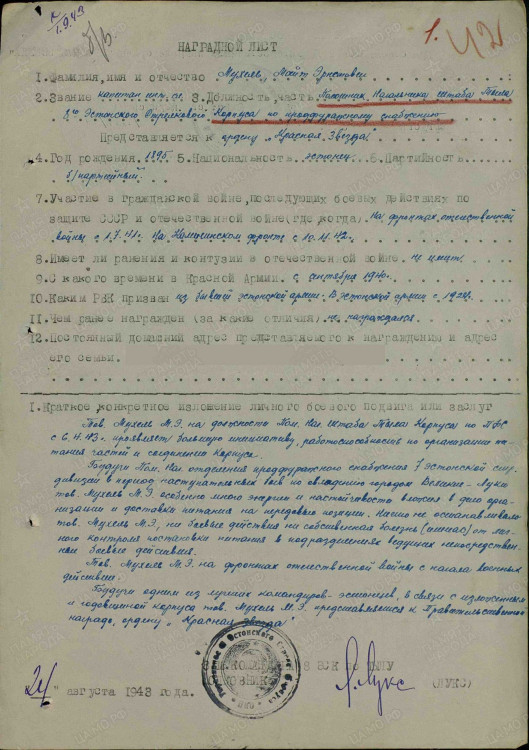 1.9.43
б/р.
1.
42
НАГРАДНОЙ ЛИСТ
1. Фамилия, имя и отчество Мухель, Майт Эрнстович
2. Звание капитан инт. сл. 3. Должность, часть Помощник Начальника штаба Тыла
8го Эстонского Стрелкового Корпуса по продфуражному снабжению
Представляется к ордену "Красная Звезда"
4. Год рождения. 1896. 5. Национальность эстонец. 6. Партийность
б/партейный.
7. Участие в Гражданской войне, последующих боевых действиях по
защите СССР и отечественной войне (где, когда) На фронтах отечественной
войны с 1.7.41г. На Калининском фронте с 10.11.42.
8. Имеет ли ранения и контузии в отечественной войне. не имеет.
9. С какого времени в Красной Армии. с сентября 1940г.
10. Каким РВК призван из бывшей эстонской армии. В эстонской армии с
11. Чем ранее награжден (за какие отличия) не награждался.
12. Постоянный домашний адрес представляемого к награждению и адрес
его семьи.
1. Краткое конкретное изложение личного боевого подвига или заслуг
Тов. Мухель М.Э. на должности Пом. Нач. Штаба Тыла Корпуса по ПФС
с 6.4.43г. проявляет большую инициативу, работоспособность по организации пи-
тания частей и соединений Корпуса.
Будучи Пом. Нач. отделения продфуражного снабжения 7 Эстонской стр.
дивизии в период наступательных боев по овладению городом Великие-Луки
тов. Мухель М.Э. особенно много энергии и настойчивости вложил в дело орга-
низации и доставки питания на передовые позиции. Ничто не останавливало
тов. Мухель М.Э., ни боевые действия ни собственная болезнь (ишиас) от лич-
ного контроля постановки питания в подразделениях ведущих непосредствен-
ные боевые действия.
Тов. Мухель М.Э. на фронтах отечественной войны с начала военных
действий.
Будучи одним из лучших командиров-эстонцев, в связи с изложенным
и годовщиной корпуса тов. Мухель М.Э. представляется к Правительственной
награде, ордену "Красная Звезда"
8 ЭСК по ТЫЛУ
24 " августа 1943 года.
Лукс (ЛУКС)